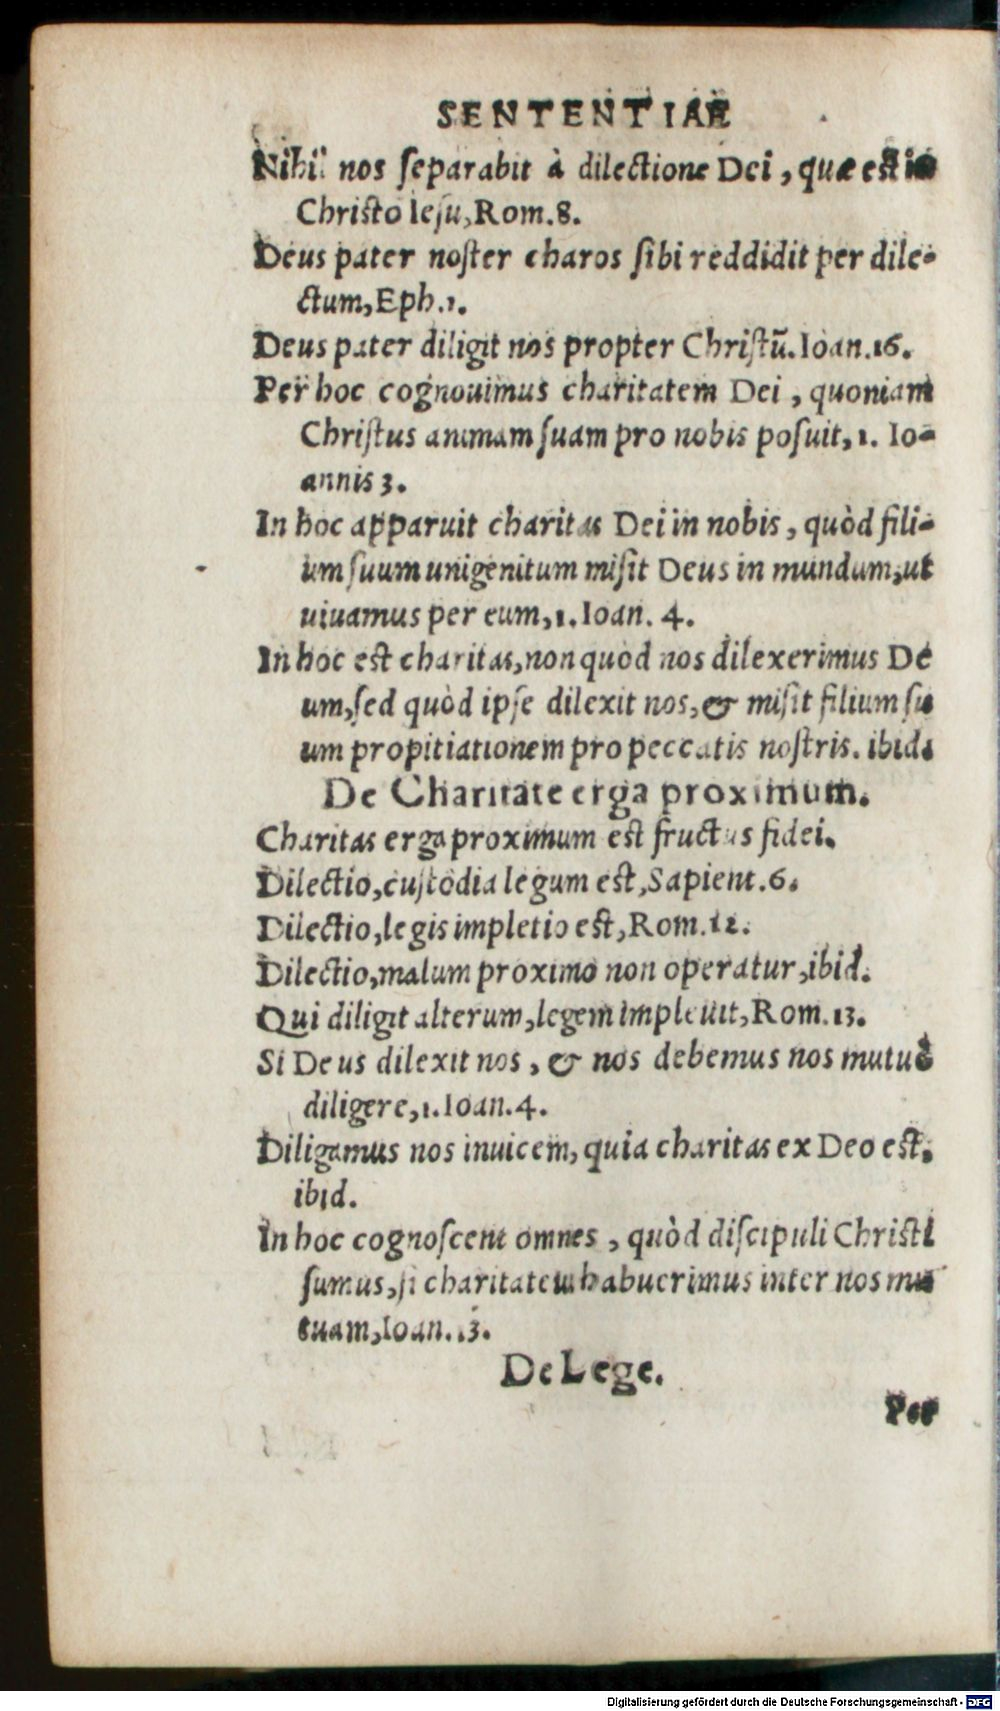 SENTENTIAE
Nihil nos ſeparabit à dilectione Dei, quæ est in
Christo Ieſu, Rom. 8.
Deus pater noſter charos ſibi reddidit per dile-
ctum, Eph. 1.
Deus pater diligit nos propter Chriſtū. Ioan. 16.
Per hoc cognouimus charitatem Dei, quoniam
Chriſtus animam ſuam pro nobis poſuit, 1. Io-
annis 3.
In hoc apparuit charitas Dei in nobis, quòd fili-
um ſuum unigenitum miſit Deus in mundum, ut
uiuamus per eum, 1. Ioan. 4.
In hoc est charitas, non quòd nos dilexerimus De
um, ſed quòd ipſe dilexit nos, & miſit filium ſu
um propitiationem pro peccatis noſtris. ibid.
De Charitate erga proximum.
Charitas erga proximum est fructus fidei.
Dilectio, cuſtodia legum est, Sapient. 6.
Dilectio, legis impletio est, Rom. 12.
Dilectio, malum proximo non operatur, ibid.
Qui diligit alterum, legem impleuit, Rom. 13.
Si Deus dilexit nos, & nos debemus nos mutuò
diligere, 1. Ioan. 4.
Diligamus nos inuicem, quia charitas ex Deo est.
ibid.
In hoc cognoſcent omnes, quòd diſcipuli Christi
ſumus, ſi charitatem habuerimus inter nos mu
tuam, Ioan. 13.
De Lege.
Per
Digitalisierung gefördert durch die Deutsche Forschungsgemeinschaft - DFG